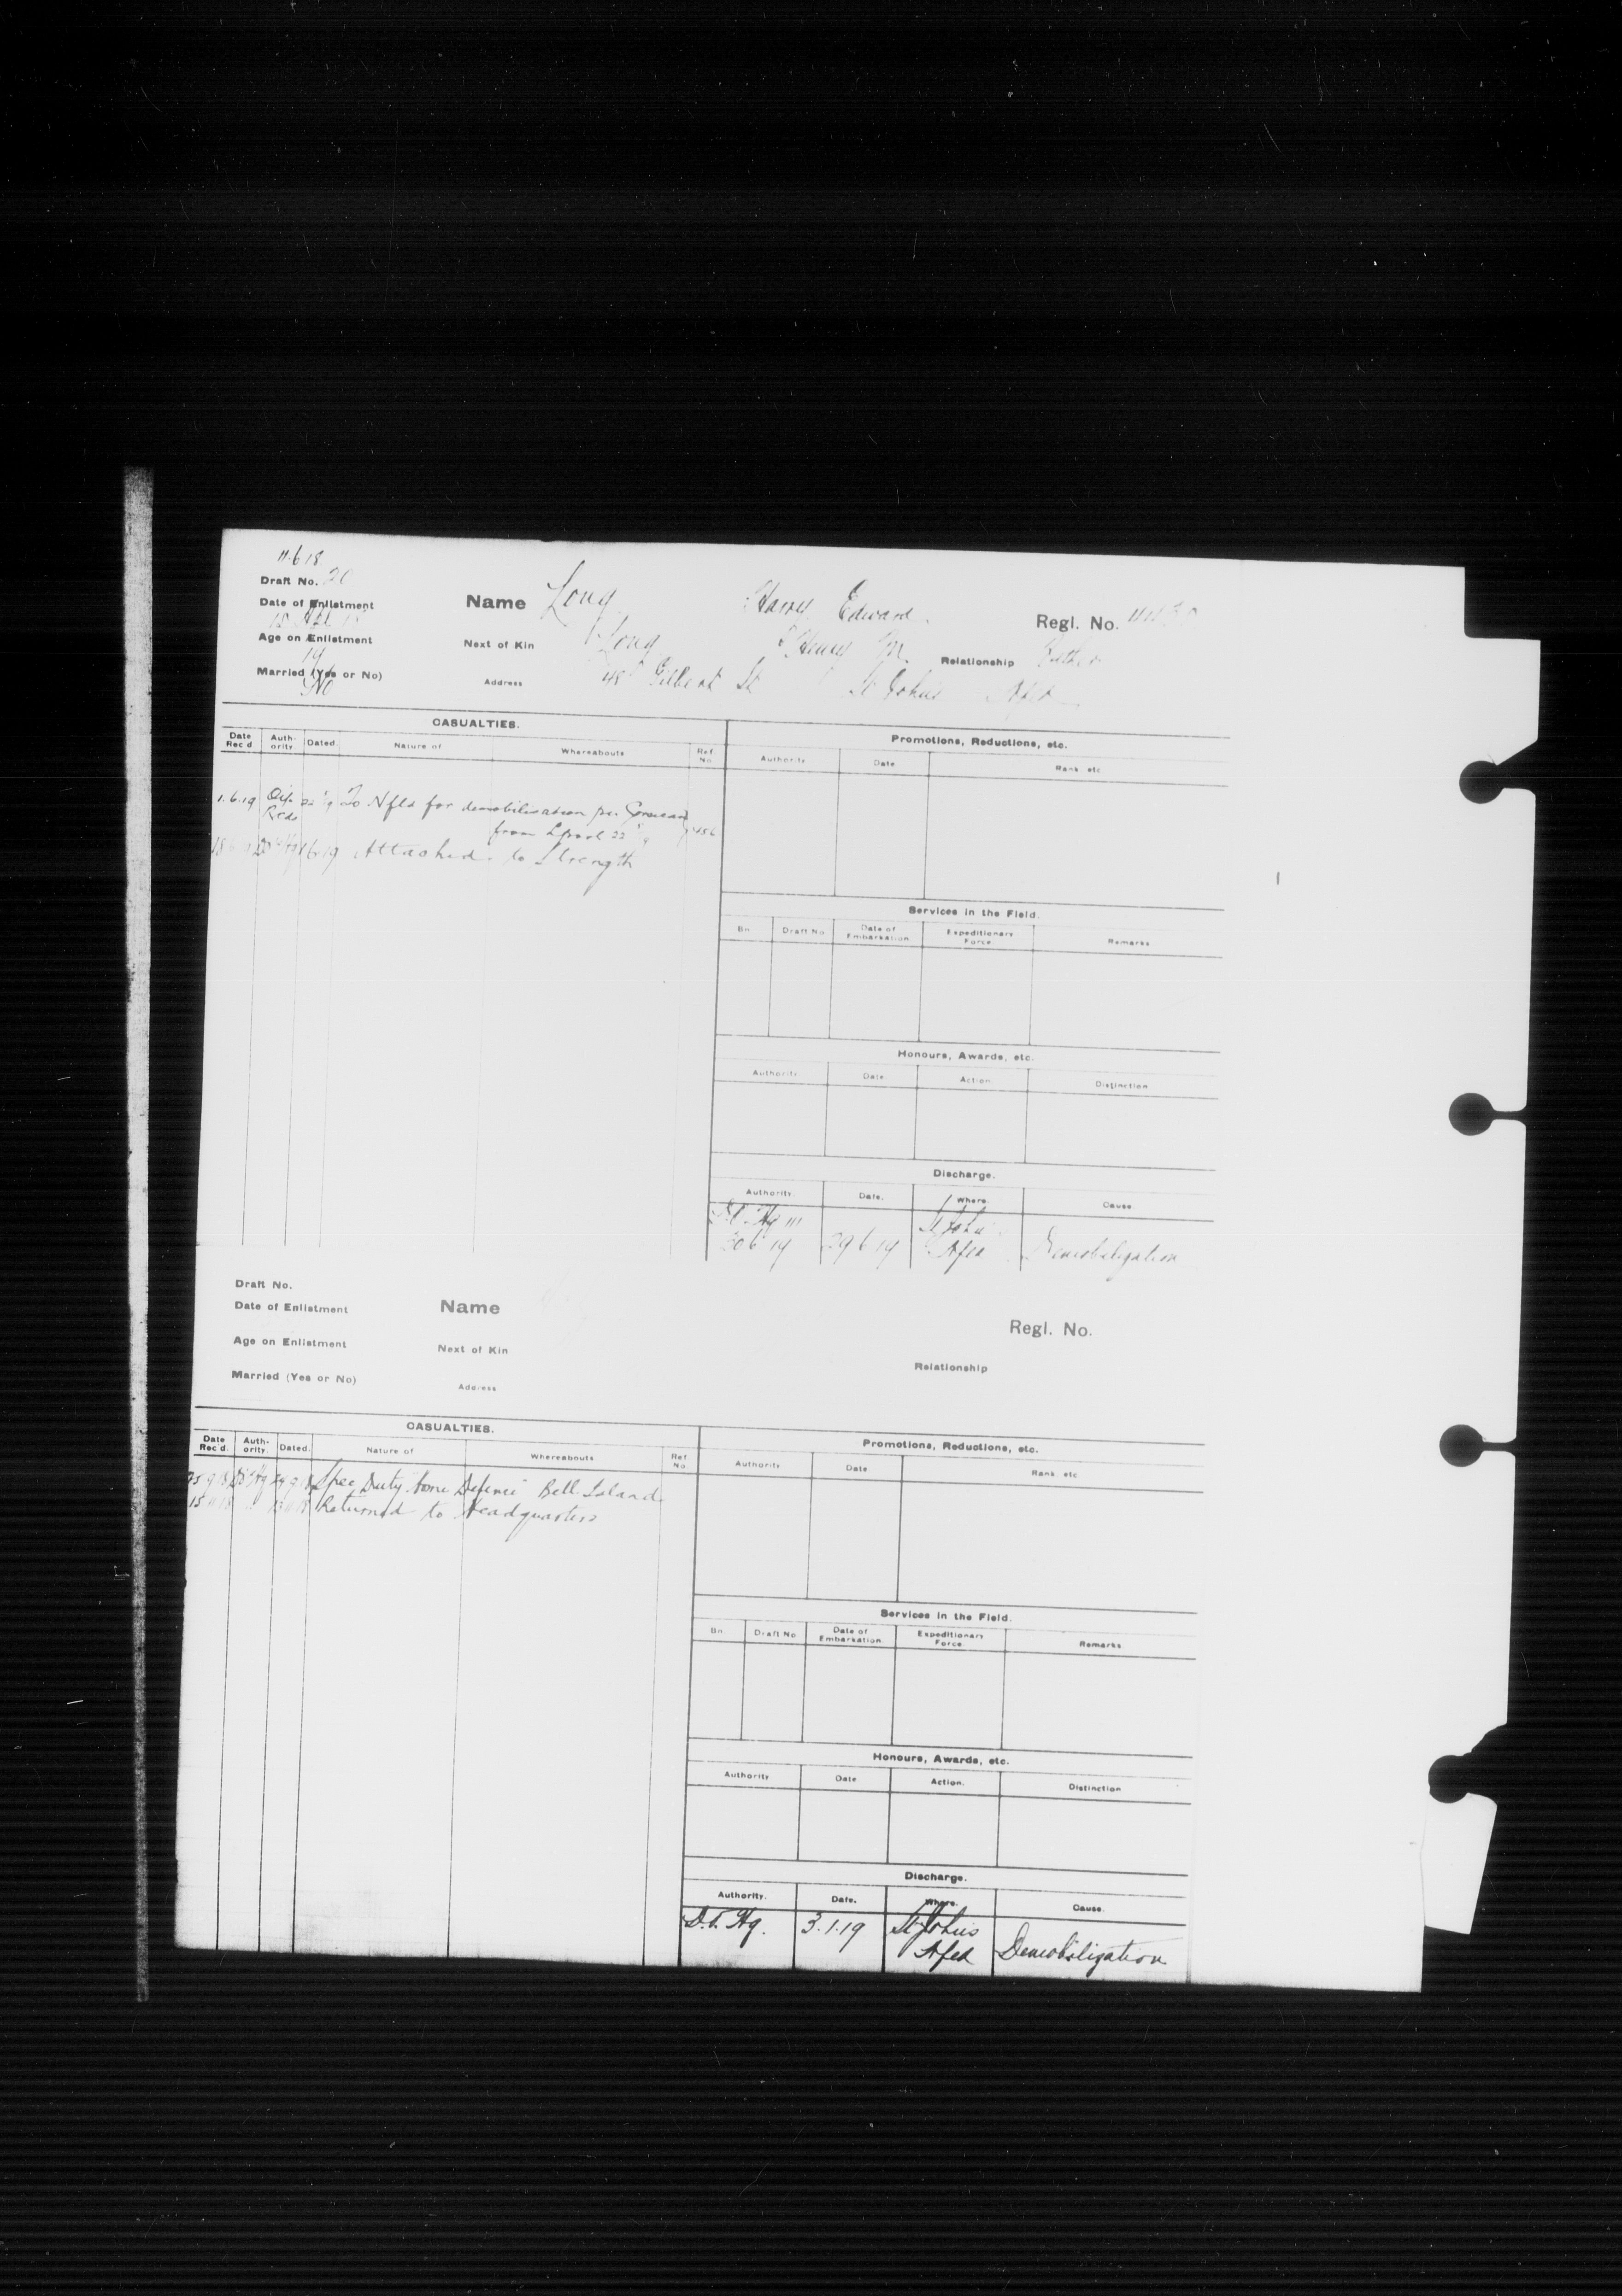 11.6.18
Draft No. 20
Date of Enlistment
Name Long Harry Edward.
Regl. No.
Age on Enlistment
19
Next of Kin Long Henry M. Relationship Father
Married (Yes or No)
No
Address 48 Gilbert St St John's Nfld
CASUALTIES.
Promotions, Reductions, etc.
Date Rec'd Auth-ority Dated Nature of Whereabouts Ref No
Authority Date Rank etc
1.6.19 Rcds 22 To Nfld for demobilisation per Corsican
from Lpool 22
Attached to Strength
Services in the Field.
Bn Draft No Date of Embarkation Expeditionary Force Remarks
Honours, Awards, etc.
Authority Date Action Distinction
Discharge.
Authority. Date. Where. Cause
Hq St John's
30 6 19 29 6 19 Nfld Demobilization
Draft No.
Date of Enlistment
Name
Regl. No.
Age on Enlistment
Next of Kin
Relationship
Married (Yes or No)
Address
CASUALTIES.
Promotions, Reductions, etc.
Date Rec'd. Auth-ority. Dated. Nature of Whereabouts Ref No
Authority Date Rank etc
Spec Duty Home Defence Bell Island
Returned to Headquarters
Services in the Field.
Bn. Draft No Date of Embarkation Expeditionary Force Remarks
Honours, Awards, etc.
Authority Date Action. Distinction
Discharge.
Authority. Date. Where. Cause.
D.O. Hq. 3.1.19 St John's
Nfld Demobilization